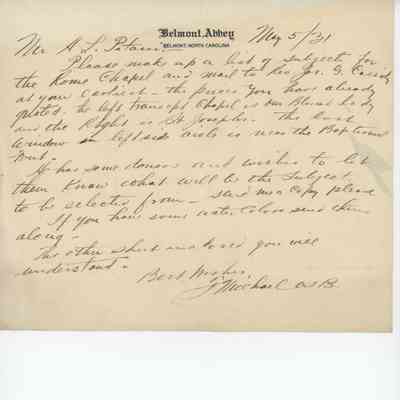 Belmont Abbey
BELMONT, NORTH CAROLINA
May 5/31
Mr A L. Pitassi.
Please make up a list of subjects for
the Rome Chapel and mail to Rev Jos. G. Cassidy
at your earliest - the prices you have already
quoted. The left transept Chapel is our Blessed Lady
and the Right is St Joseph. The last
window in left side aisle is near the Baptismal
Font.
He has some donors and wishes to let
them know what will be the subject
to be selected from - send me a copy please
If you have some water colors send them
along -
another sheet you will
understand -
Best Wishes
F Michael OSB